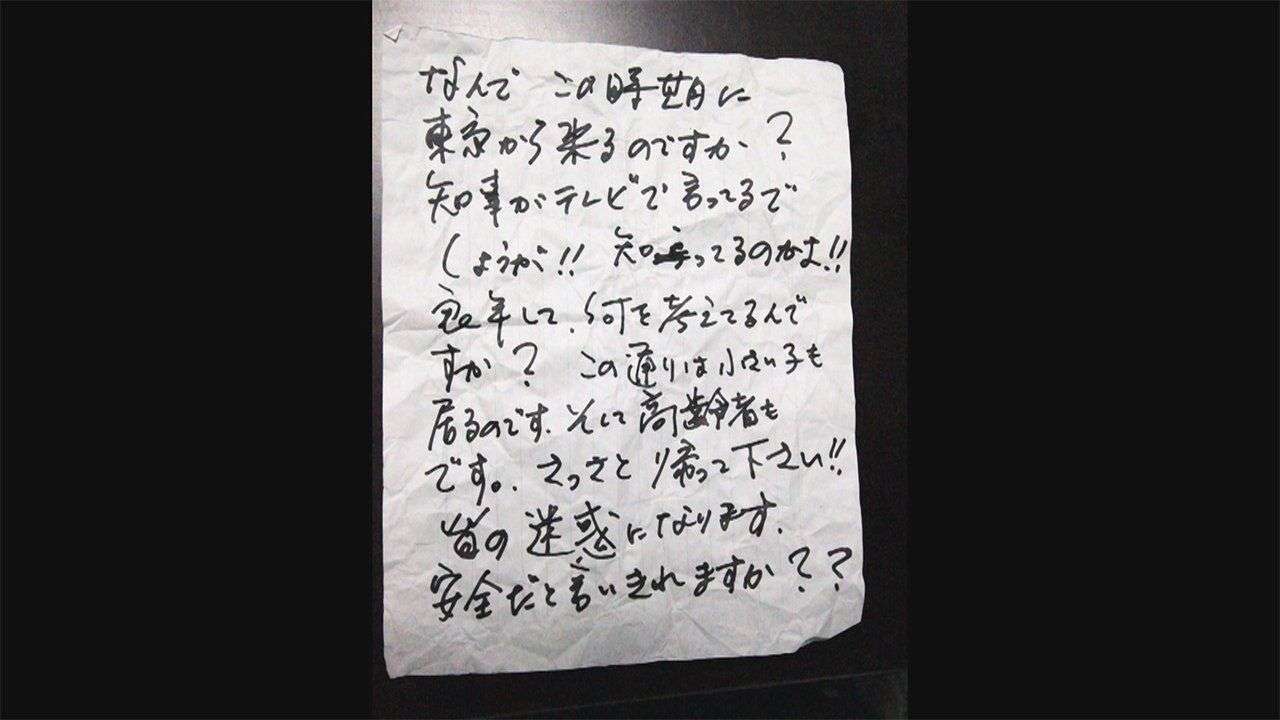 なんで この時期に
東京から来るのですか？
知事がテレビで言ってるで
しょうが!! 知ってるのかよ!!
良い年して、何を考えてるんで
すか？ この通りは小さい子も
居るのです、そして高齢者も
です。さっさと帰って下さい!!
皆の迷惑になります。
安全だと言いきれますか？？